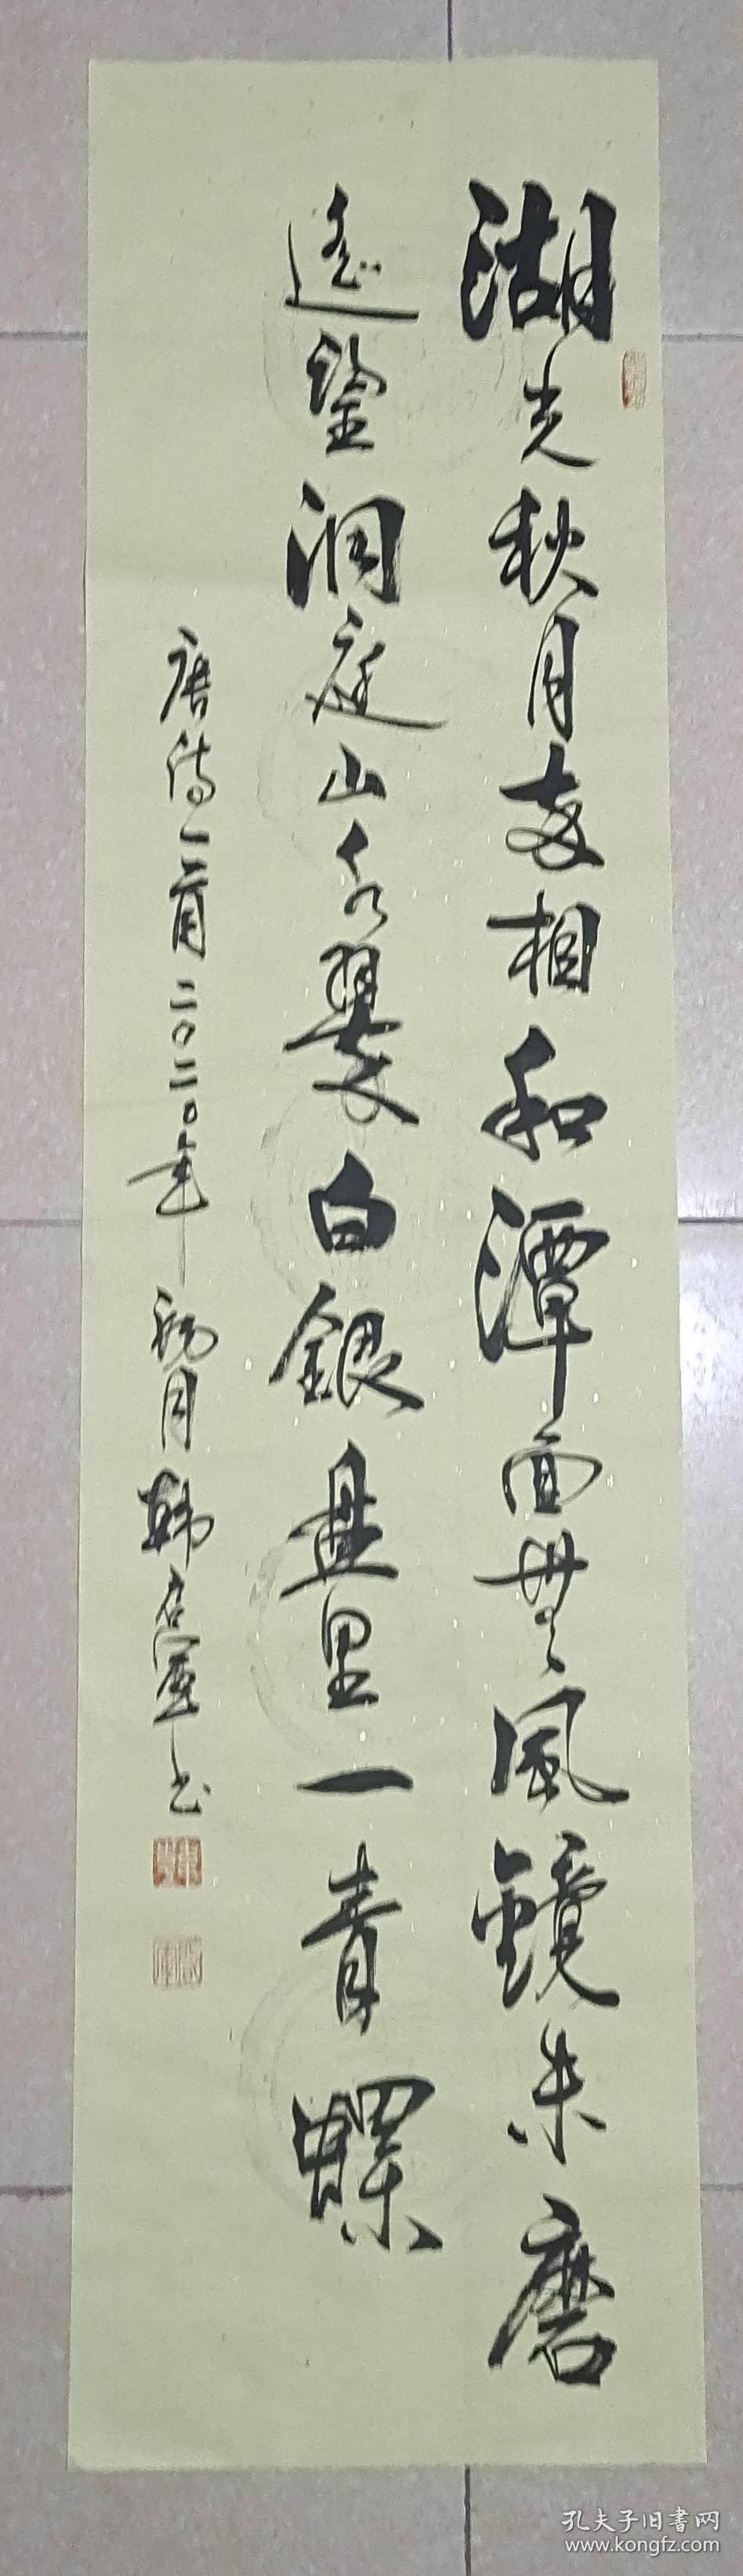 湖光秋月相和潭面無風鏡未磨
遙望洞庭山水翠白銀盘里一青螺
唐诗一首二〇二〇年月韩书
孔夫子旧書网
www.kongfz.com